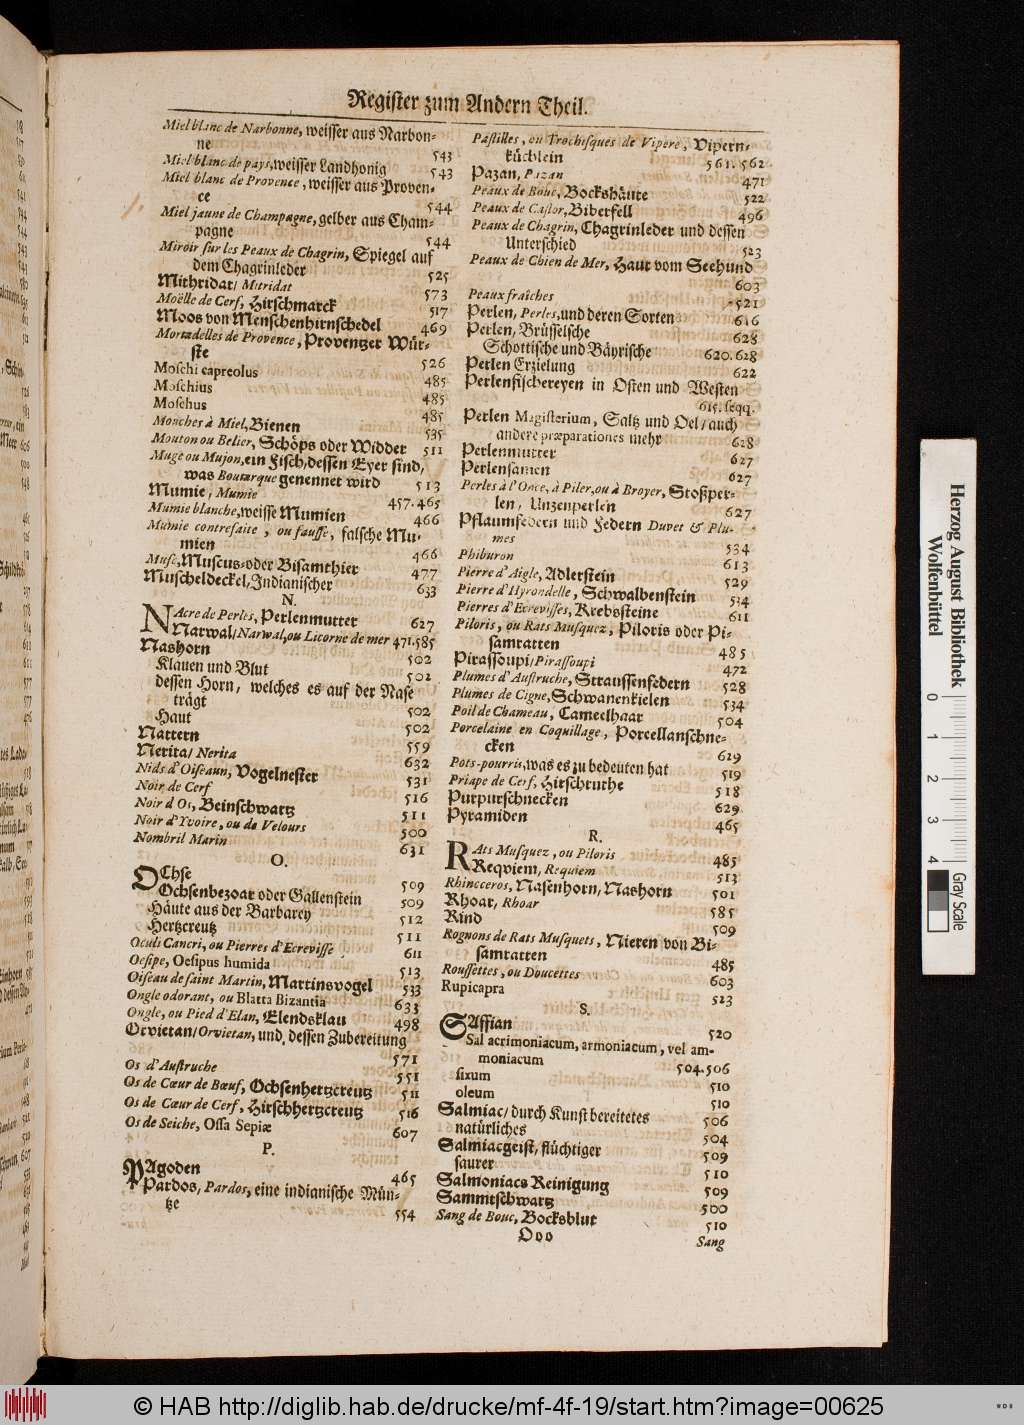 Register zum Andern Theil.
Miel blanc de Narbonne, weisser aus Narbon-
ne 543
Miel blanc de pays, weisser Landhonig 543
Miel blanc de Provence, weisser aus Proven-
ce 544
Miel jaune de Champagne, gelber aus Cham-
pagne 544
Miroir sur les Peaux de Chagrin, Spiegel auf
dem Chagrinleder 525
Mithridat/ Mitridat 573
Moëlle de Cerf, Hirschmarck 517
Moos von Menschenhirnschedel 469
Mortadelles de Provence, Proventzer Wür-
ste 526
Moschi capreolus 485
Moschius 485
Moschus 485
Mouches à Miel, Bienen 535
Mouton ou Belier, Schöps oder Widder 511
Muge ou Mujon, ein Fisch, dessen Eyer sind,
was Boutarque genennet wird 513
Mumie, Mumie 457.465
Mumie blanche, weisse Mumien 466
Mumie contrefaite, ou fausse, falsche Mu-
mien 466
Musc, Muscus- oder Bisamthier 477
Muscheldeckel, Indianischer 633
N.
NAcre de Perles, Perlenmutter 627
Narwal/ Narwal, ou Licorne de mer 471.585
Nashorn 502
Klauen und Blut 502
dessen Horn, welches es auf der Nase
trägt 502
Haut 502
Nattern 559
Nerita/ Nerita 632
Nids d'Oiseaun, Vogelnester 531
Noir de Cerf 516
Noir d'Os, Beinschwartz 511
Noir d'Yvoire, ou de Velours 500
Nombril Marin 631
O.
OChse 509
Ochsenbezoar oder Gallenstein 509
Häute aus der Barbarey 512
Hertzcreutz 511
Oculi Cancri, ou Pierres d'Ecrevisse 611
Oesipe, Oesipus humida 513
Oiseau de saint Martin, Martinsvogel 533
Ongle odorant, ou Blatta Bizantia 633
Ongle, ou Pied d'Elan, Elendsklau 498
Orvietan/ Orvietan, und dessen Zubereitung
571
Os d'Austruche 551
Os de Cœur de Bœuf, Ochsenhertzcreutz 511
Os de Cœur de Cerf, Hirschhertzcreutz 516
Os de Seiche, Ossa Sepiæ 607
P.
PAgoden 465
Pardos, Pardos, eine indianische Mün-
tze 554
Pastilles, ou Trochisques de Vipere, Vipern-
küchlein 561.562
Pazan, Pazan 471
Peaux de Bouc, Bockshäute 522
Peaux de Castor, Biberfell 496
Peaux de Chagrin, Chagrinleder und dessen
Unterschied 523
Peaux de Chien de Mer, Haut vom Seehund
603
Peaux fraiches 521
Perlen, Perles, und deren Sorten 616
Perlen, Brüsselsche 628
Schottische und Bäyrische 620.628
Perlen Erzielung 622
Perlenfischereyen in Osten und Westen
615. seqq.
Perlen Magisterium, Saltz und Oel/ auch
andere præparationes mehr 628
Perlenmutter 627
Perlensamen 627
Perles à l'Once, à Piler, ou à Broyer, Stoßper-
len, Unzenperlen 627
Pflaumfedern und Federn Duvet & Plu-
mes 534
Phiburon 613
Pierre d'Aigle, Adlerstein 529
Pierre d'Hyrondelle, Schwalbenstein 534
Pierres d'Ecrevisses, Krebssteine 611
Piloris, ou Rats Musquez, Piloris oder Pi-
samratten 485
Pirassoupi/ Pirassoupi 472
Plumes d'Austruche, Straussenfedern 528
Plumes de Cigne, Schwanenkielen 534
Poil de Chameau, Cameelhaar 504
Porcelaine en Coquillage, Porcellanschne-
cken 629
Pots-pourris, was es zu bedeuten hat 519
Priape de Cerf, Hirschruthe 518
Purpurschnecken 629
Pyramiden 465
R.
RAts Musquez, ou Piloris 485
Reqviem, Requiem 513
Rhinoceros, Nasenhorn, Nashorn 501
Rhoar, Rhoar 585
Rind 509
Rognons de Rats Musquets, Nieren von Bi-
samratten 485
Roussettes, ou Doucettes 603
Rupicapra 523
S.
SAffian 520
Sal acrimoniacum, armoniacum, vel am-
moniacum 504.506
fixum 510
oleum 510
Salmiac/ durch Kunst bereitetes 506
natürliches 504
Salmiacgeist, flüchtiger 509
saurer 510
Salmoniacs Reinigung 509
Sammtschwartz 500
Sang de Bouc, Bocksblut 510
Ooo
Sang
Herzog August Bibliothek
Wolfenbüttel
0 1 2 3 4
Gray Scale
© HAB http://diglib.hab.de/drucke/mf-4f-19/start.htm?image=00625